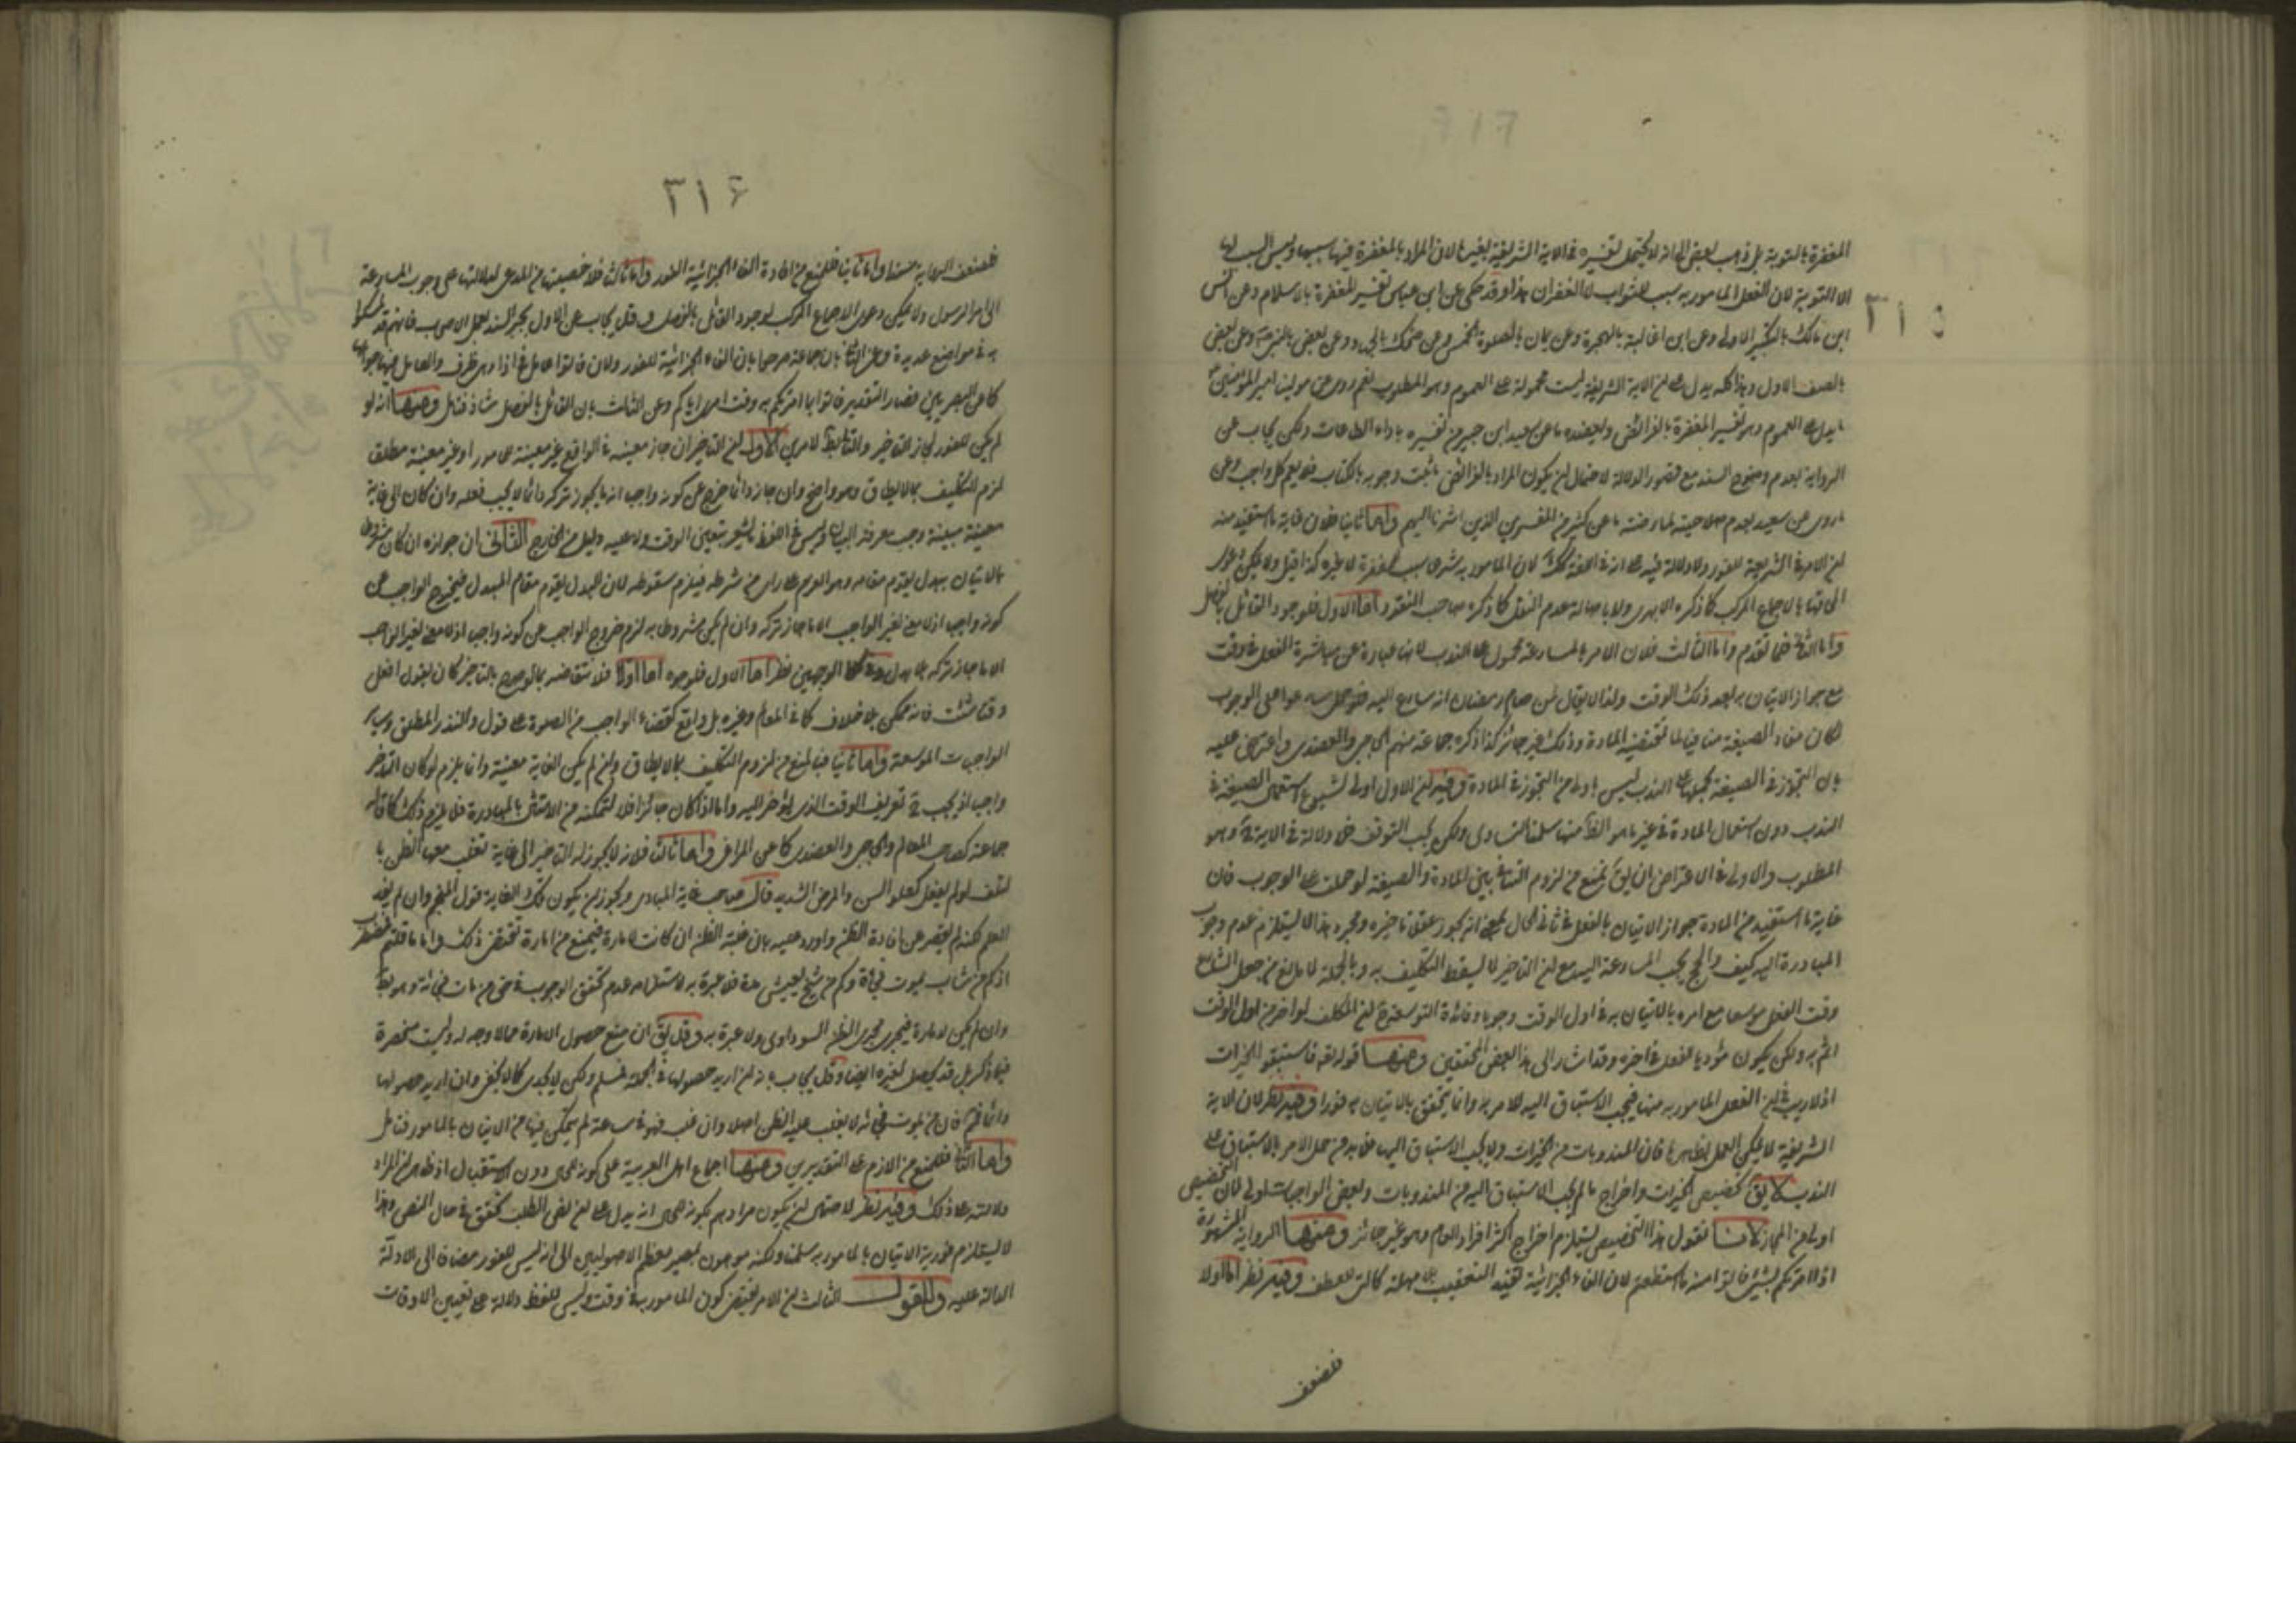 ٣١٥
المغفرة بالتوبة بل ذهب بعض الى انه لا يحتمل تفسيره في الآية الشريفة بغيرها لان المراد بالمغفرة فيها سببها وليس السبب لها
الا التوبة لان الفعل المامور به سبب للثواب لا الغفران هذا وقد حكى عن ابن عباس تفسير المغفرة بالاسلام وعن انس
ابن مالك بالتكبير الاولى وعن ابي العالية بالهجرة وعن يمان بالصلوة الخمس وعن ضحاك بالجهاد وعن بعض وعن بعض
بالصف الاول وهذا كله يدل على ان الآية الشريفة ليست محمولة على العموم وهو المطلوب نعم روى عن مولينا امير المؤمنين
ما يدل على العموم وهو تفسير المغفرة بالفرائض ويعضده ما عن سعيد ابن جبير من تفسيره باداء الطاعات ولكن يجاب عن
الرواية بعدم وضوح السند مع قصور الدلالة لاحتمال ان يكون المراد بالفرائض ما ثبت وجوبه بالكتاب فلا يعم كل واجب وعن
ما روى عن سعيد بعدم صلاحيته لمعارضته ما عن كثير من المفسرين الذين اشرنا اليهم واما ثانيا فلان غاية ما استفيد منه
ان الامر في الشريعة للفور ولا دلالة فيه على انه في اللغة كذلك لان المامور به شرعا سبب للمغفرة لا غيره كذا قيل ولا يمكن
الحاقها بالاجماع المركب كما ذكره الابهرى ولا باصالة عدم النقل كما ذكره صاحب النقود اما الاول فلوجود القائل بالفصل
واما الثاني فلما تقدم واما الثالث فلان الامر بالمسارعة محمول على الندب لانها عبارة عن مباشرة الفعل في وقت
مع جواز الاتيان به بعد ذلك الوقت ولذا لا يقال لمن صام رمضان انه سارع اليه فلو حمل سارعوا على الوجوب
لكان مفاد الصيغة منافيا لما تقتضيه المادة وذلك غير جائز كذا ذكره جماعة منهم الحاجبي والعضدى واعترض عليه
بان التجوز في الصيغة بحملها على الندب ليس باولى من التجوز في المادة وفيه ان الاول اولى لشيوع استعمال الصيغة في
الندب دون استعمال المادة في غير ما هو الظاهر منها سلمنا التساوى ولكن يجب التوقف فلا دلالة في الآية وهو
المطلوب والاولى في الاعتراض ان يقال نمنع من لزوم التنافي بين المادة والصيغة لو حملت على الوجوب فان
غاية ما استفيد من المادة جواز الاتيان بالفعل في ثاني الحال بمعنى انه يجوز عقلا تاخيره ومجرد هذا لا يستلزم عدم وجوب
المبادرة اليه كيف والحج يجب المسارعة اليه مع ان التاخير لا يسقط التكليف به وبالجملة لا مانع من جعل الشارع
وقت الفعل موسعا مع امره بالاتيان به في اول الوقت وجوبا وفائدة التوسعة ان المكلف لو اخر من اول الوقت
اثم به ولكن يكون مؤديا للفعل في اخره وقد اشار الى هذا بعض المحققين ومنها قوله تعالى فاستبقوا الخيرات
اذ لا ريب في ان الفعل المامور به منها فيجب الاستباق اليه للامر به وانما يتحقق بالاتيان به فورا وفيه نظر لان الآية
الشريفة لا يمكن العمل بظاهرها فان المندوبات من الخيرات ولا يجب الاستباق اليها فلا بد من حمل الامر بالاستباق على
الندب لا يقال تخصيص الخيرات واخراج ما لم يجب الاستباق اليه من المندوبات وبعض الواجبات اولى لان التخصيص
اولى من المجاز لانا نقول هذا التخصيص يستلزم اخراج اكثر افراد العام وهو غير جائز ومنها الرواية المشهورة
اذا امرتكم بشيء فاتوا منه ما استطعتم لان الفاء الجزائية تفيد التعقيب بلا مهلة كالتي للعطف وفيه نظر اما اولا
فلضعف
٣١٦
فلضعف الرواية سندا واما ثانيا فللمنع من افادة الفاء الجزائية الفور واما ثالثا فلاخصيتها من المدعى لدلالتها على وجوب المسارعة
الى امر الرسول ولا يمكن دعوى الاجماع المركب لوجود القائل بالفصل وقد يجاب عن الاول بجبر السند بعمل الاصحاب فانهم قد تمسكوا
به في مواضع عديدة وعن الثاني بان جماعة صرحوا بان الفاء الجزائية للفور ولان فاتوا عامل في اذا وهى ظرف والعامل فيها جوابها
كما عن البصريين فصار التقدير فاتوا بما امرتكم به وقت امرى اياكم وعن الثالث بان القائل بالفصل شاذ فتامل ومنها انه لو
لم يكن للفور لجاز التاخير والتالي باطل لامرين الاول ان التاخير ان جاز معينة في الواقع غير معينة للمامور او غير معينة مطلقا
لزم التكليف بما لا يطاق وهو واضح وان جاز دائما خرج عن كونه واجبا اذ ما يجوز تركه دائما لا يجب فعله وان كان الى غاية
معينة مبينة وجب معرفة البيان وليس في اللفظ ما يشعر بتعيين الوقت ولا عليه دليل من الخارج الثاني ان جوازه ان كان مشروطا
بالاتيان ببدل يقوم مقامه وهو العزم على راى من شرطه فيلزم سقوطه لان البدل يقوم مقام المبدل فيخرج الواجب عن
كونه واجبا اذ لا معنى لغير الواجب الا ما جاز تركه وان لم يكن مشروطا به لزم خروج الواجب عن كونه واجبا اذ لا معنى لغير الواجب
الا ما جاز تركه بلا بدل وفي كلا الوجهين نظر اما الاول فلوجوه اما اولا فلانتقاضه بما لو صرح بالتاخير كان يقول افعل
وقتا شئت فانه ممكن بلا خلاف كما في المعالم وغيره بل واقع كقضاء الواجب من الصلوة على قول والنذر المطلق وساير
الواجبات الموسعة واما ثانيا فبالمنع من لزوم التكليف بما لا يطاق وان لم يكن الغاية معينة وانما يلزم لو كان التاخير
واجبا اذ يجب تعريف الوقت الذى يؤخر اليه واما اذا كان جائزا فلا لتمكنه من الامتثال بالمبادرة فلا يلزم ذلك كما قاله
جماعة كصاحب المعالم والحاجبي والعضدى كما عن المرتضى واما ثالثا فلانه لا يجوز له التاخير الى غاية تغلب معها الظن
بالتلف لو لم يفعل كعلو السن والمرض الشديد قال صاحب غاية المبادى ويجوز ان يكون تلك الغاية قول المنجم وان لم يفد
العلم لكنه لم يقصر عن افادة الظن واورد عليه بان غلبة الظن ان كانت لامارة فيمنع من امارة تقتضى ذلك واما ما قلتم فمضطرب
اذ كم من شاب يموت فجاة وكم من شيخ يعيش مدة فلا عبرة به لاستلزامه عدم تحقق الوجوب في حق من مات فجاة وهو باطل
وان لم يكن لامارة فيجرى مجرى الظن السوداوى ولا عبرة به وقد يقال ان منع حصول الامارة مما لا وجه له وليست منحصرة
فيما ذكر بل قد يحصل لغيره ايضا وقد يجاب بانه ان اريد حصولها في الجملة فمسلم ولكن لا يجدى كما لا يخفى وان اريد حصولها
دائما فلا فان من يموت فجاة لا يغلب عليه الظن اصلا وان غلب فهو في ساعة لم يتمكن فيها من الاتيان بالمامور فتامل
واما الثاني فللمنع من اللازم على التقديرين ومنها اجماع اهل العربية على كونه للحال دون الاستقبال اذ ظاهره ان المراد
دلالته على ذلك وفيه نظر لاحتمال ان يكون مرادهم بكونه للحال انه يدل على ان نفس الطلب تحقق في حال النطق وهذا
لا يستلزم فورية الاتيان بالمامور به سلمنا ولكنه موهون بمصير معظم الاصوليين الى انه ليس للفور مضافا الى الادلة
الدالة عليه والقول الثالث ان الامر يقتضى كون المامور به في وقت وليس للفظ دلالة على تعيين الاوقات